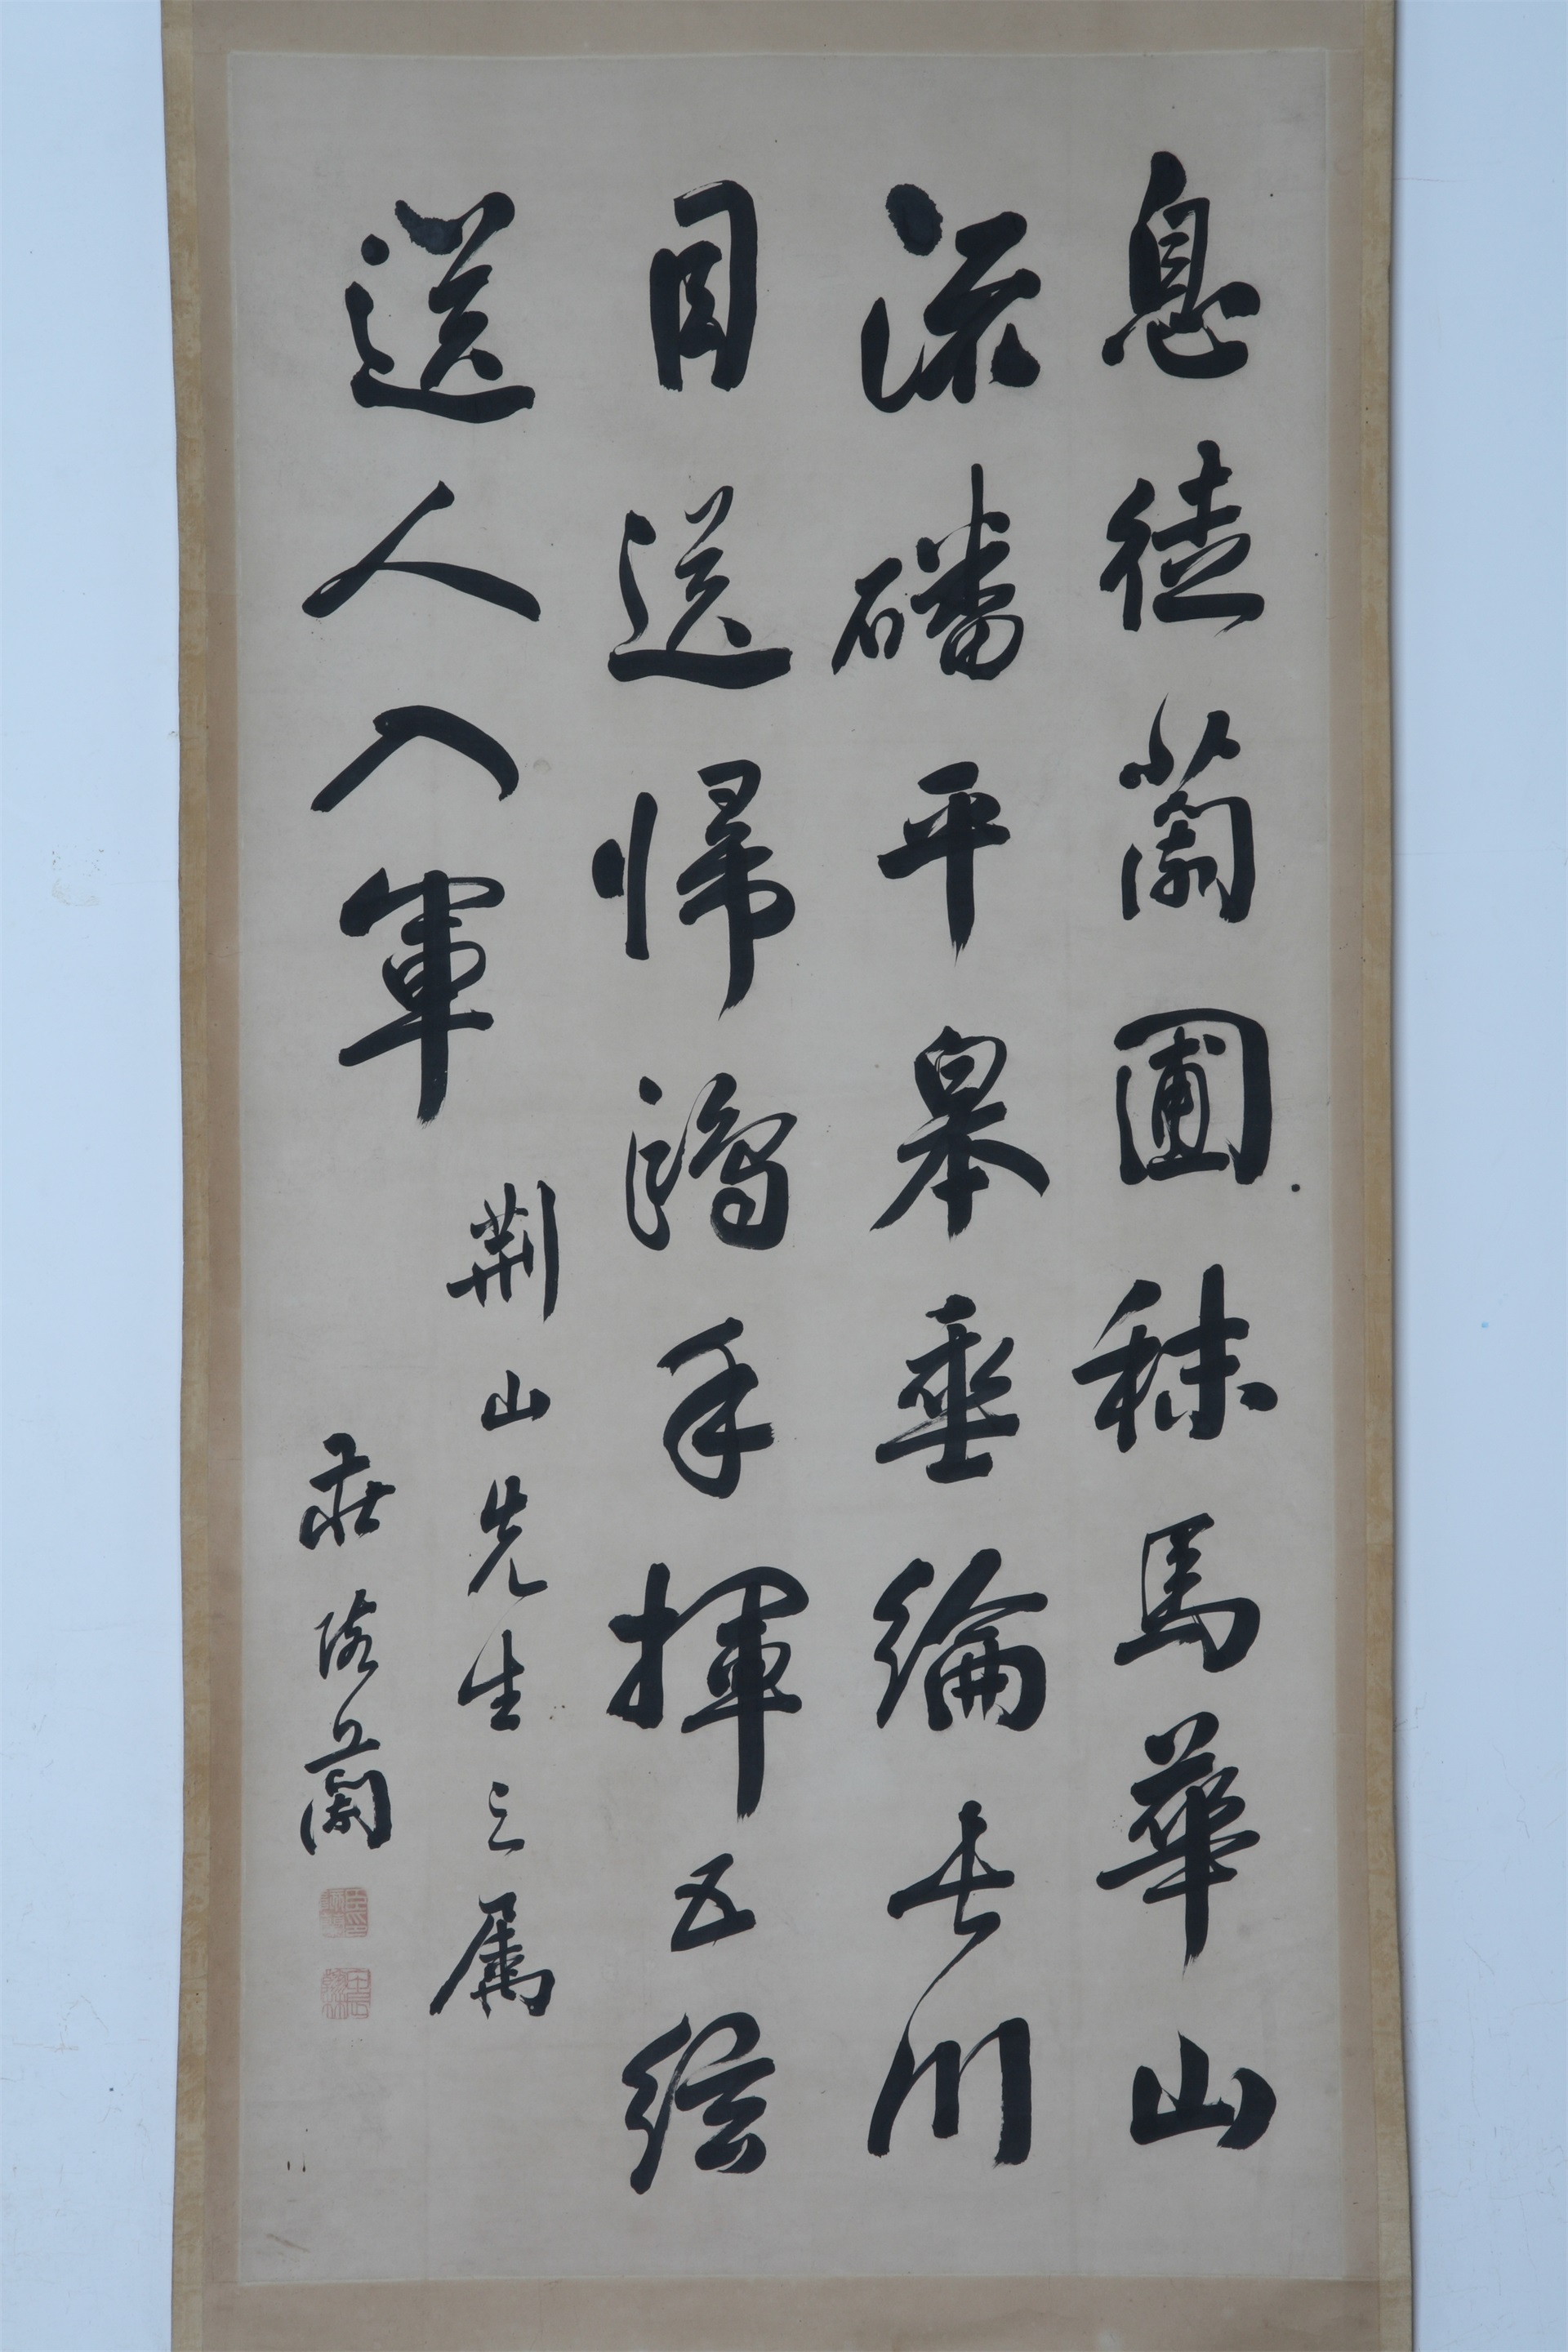 息徒蘭圃秣馬華山
流磻平皋垂綸長川
目送帰鴻手揮五絃
送人入軍
荊山先生之属
莊陔蘭